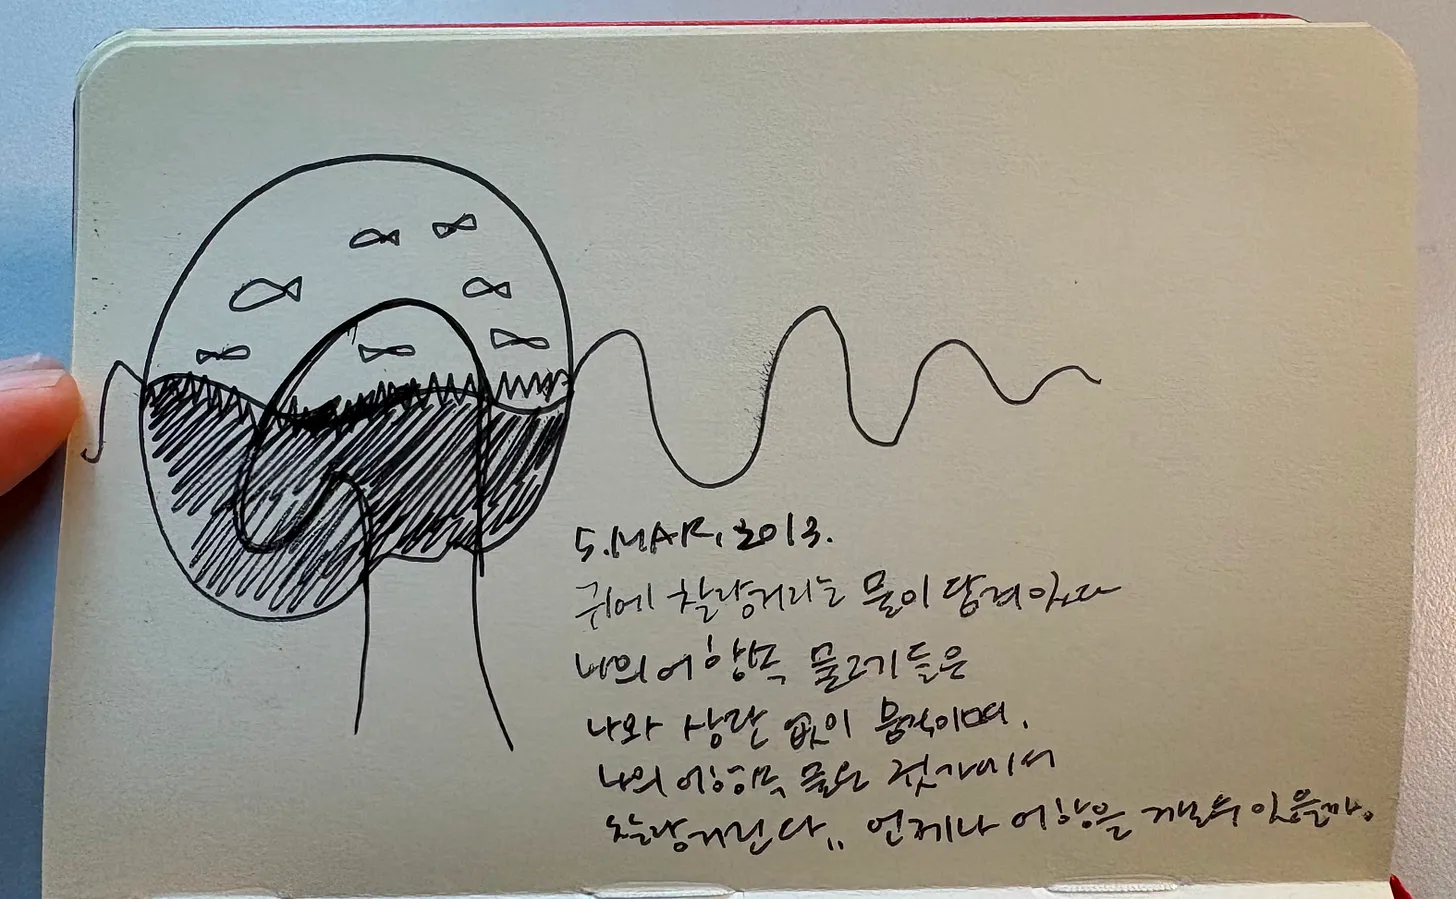 5.MAR, 2013.
귀에 찰랑거리는 물이 담겨있다
나의 어항속 물고기들은
나와 상관 없이 움직이며,
나의 어항속 물은 귓가에서
찰랑거린다.. 언제나 어항을 깰 수 있을까.